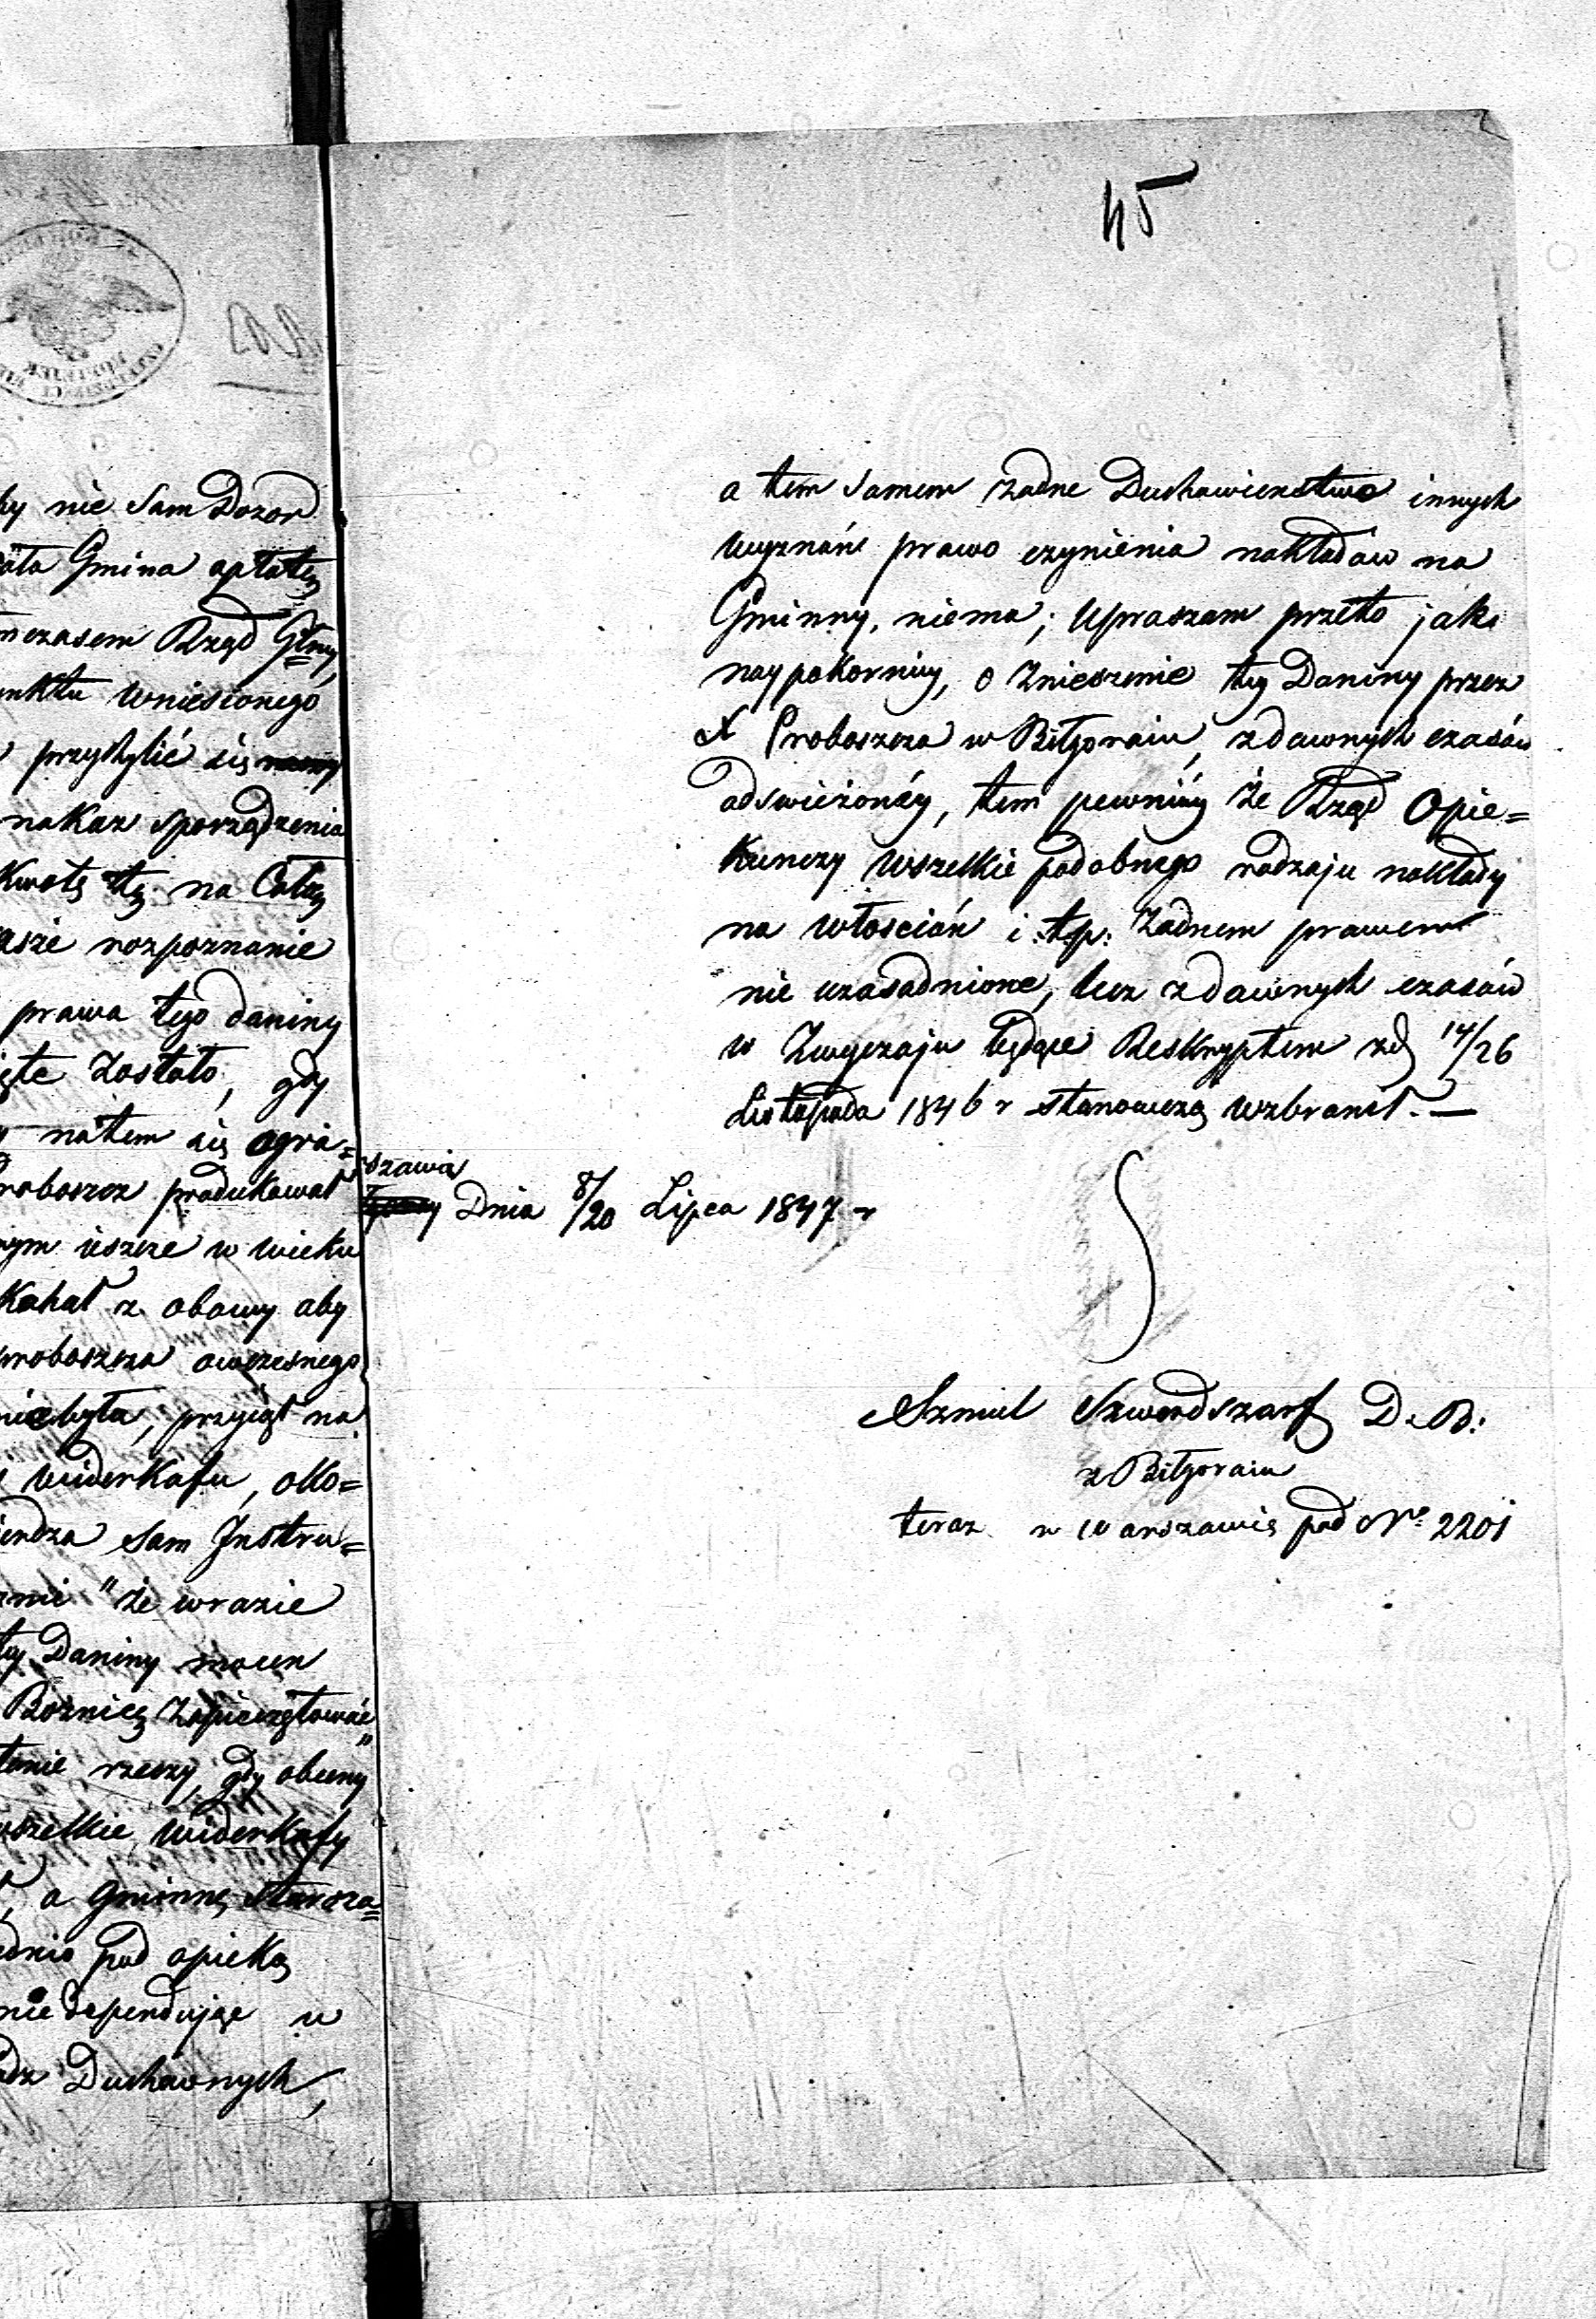 45
by nie Sam Dozor
Gmina opłatę
Rząd Głny
wniesionego
przychylić się
nakaz sporządzenia
Kwotę tę na Całą
rozpoznanie
prawa tego daniny
zostało, gdy
natem się ogra=
produkował
iescze w wieku
Kahał z obawy aby
proboszcza owczesnego
niebyła, przyiął na
widerkafu, oko=
Sam Instru=
"że wrazie
Daniny mocen
Boznicę Zapieczętować"
rzeszy, gdy obecny
widerkafy
a Gminne, Starsza=
pod opieką
nie dependując w
Duchownych,
a tem samem żadne Duchowieństwo innych
wyznań prawo czynienia nakładów na
Gminny, niema; Upraszam przeto jak
naypokorniey, o Zniesienie tey Daniny przez
X Proboszcza w Biłgoraiu, zdawnych czasów
odswieżonéy, tem pewniéy że Rząd Opie=
kunczy wszelkie podobnego rodzaju nakłady
na włoscián i. t.p: Żadnem prawem
nie uzasadnione, lecz zdawnych czasów
w Zwyczaju będące Reskryptem zd 14/26
Listopada 1846 r stanowczo wzbronił. —
szawia
Dnia 8/20 Lipca 1847 r
Szmul Szwerdszarf D. B:
z Biłgoraiu
teraz w Warszawie pod No 2201